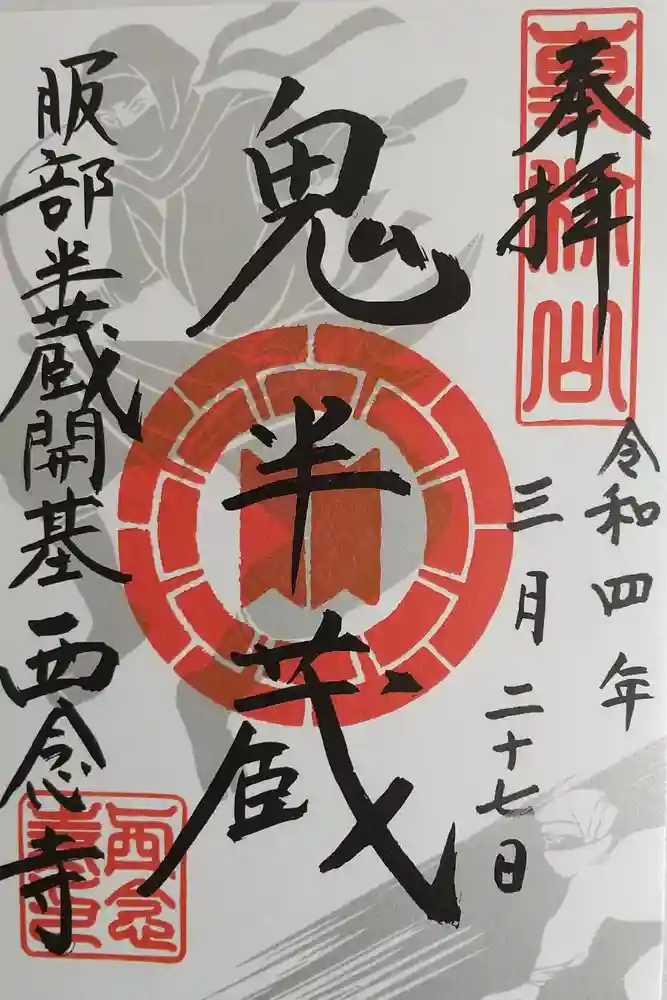 奉拝
令和四年
三月二十七日
鬼半蔵
服部半蔵開基西念寺
西念